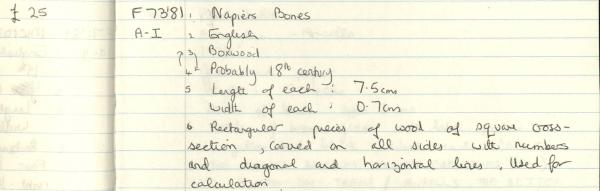 £25 F7381. 1 Napiers Bones
A-I 2 English
?3 Boxwood
4 Probably 18th century
5 Length of each : 7.5cms
Width of each : 0.7cm
6 Rectangular pieces of wood of square cross-
section, carved on all sides with numbers
and diagonal and horizontal lines. Used for
calculation